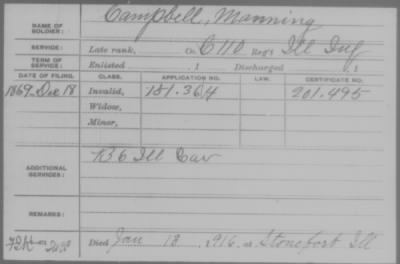 NAME OF SOLDIER: Campbell, Manning
SERVICE: Late rank, Co. C 110 Reg't Ill Inf
TERM OF SERVICE: Enlisted 1 Discharged , 1
DATE OF FILING. CLASS. APPLICATION NO. LAW. CERTIFICATE NO.
1869 Dec 18 Invalid, 151.364 201.495
Widow,
Minor,
ADDITIONAL SERVICES: K 6 Ill Cav
REMARKS:
Died Jan 18, 1916, at Stonefort Ill